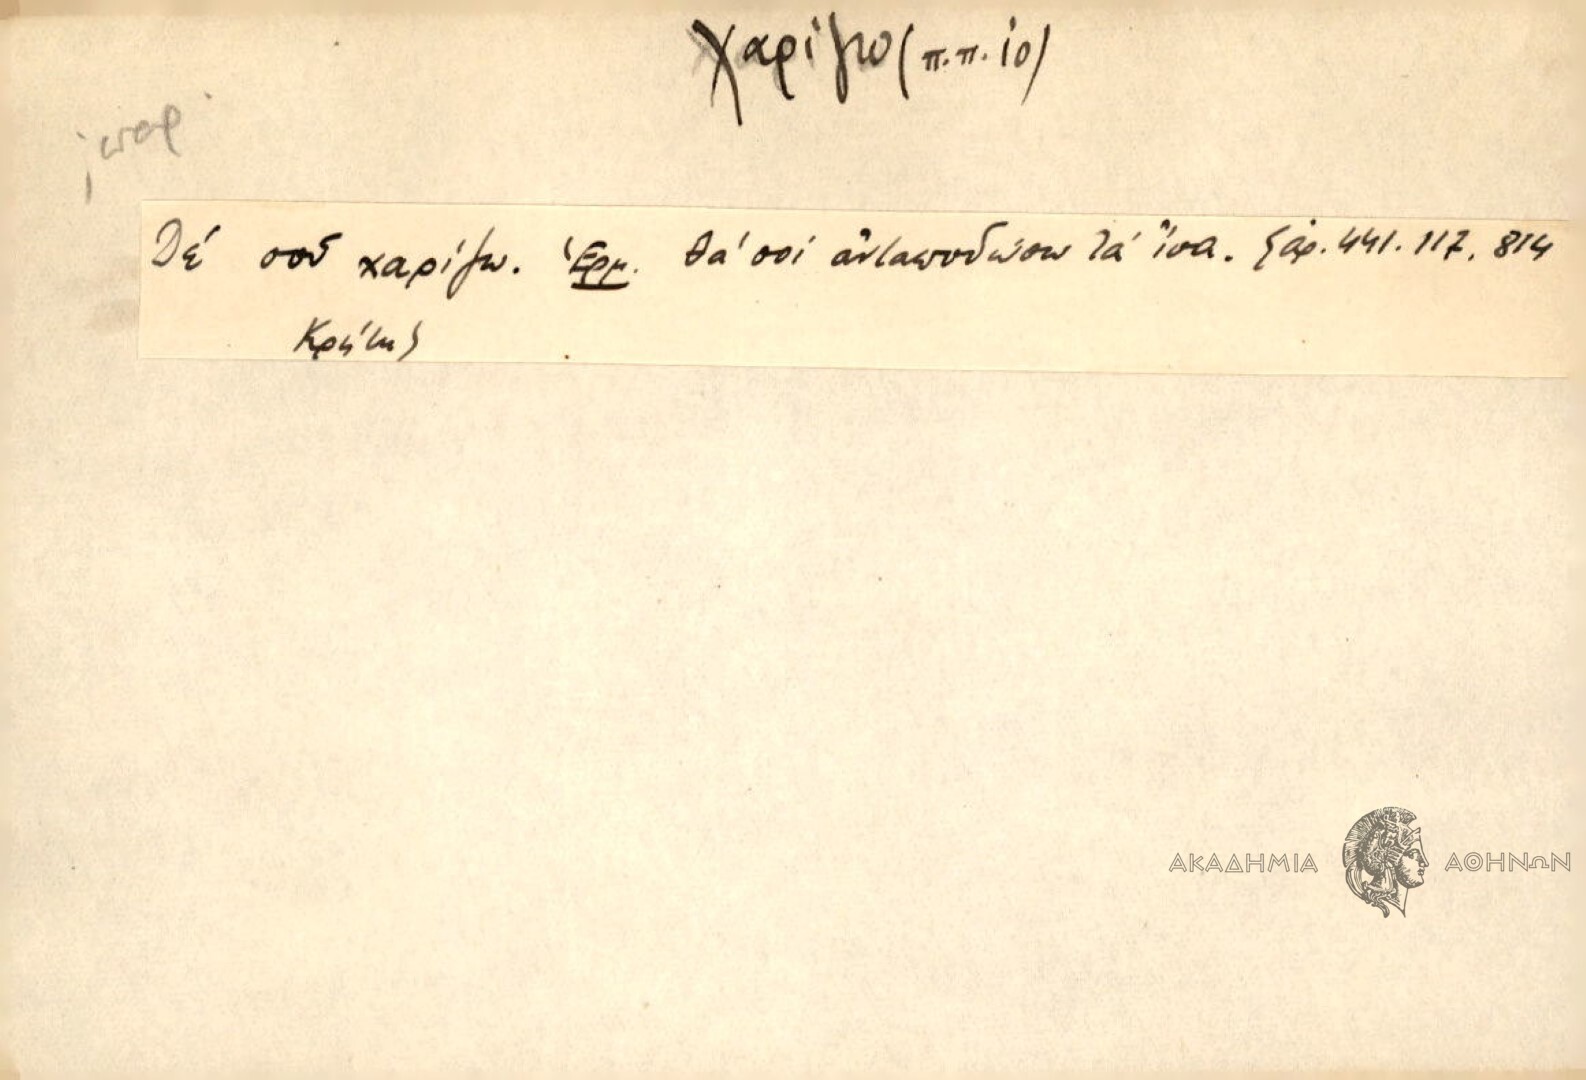 Χαρίζω (π.π. ἰδ)
παρ
Δέ σοῦ χαρίζω. Ἑρμ. Θά σοί ἀνταποδώσω τά ἴσα. ἀρ. 441. 117, 814
Κρήτης
ΑΚΑΔΗΜΙΑ ΑΘΗΝΩΝ